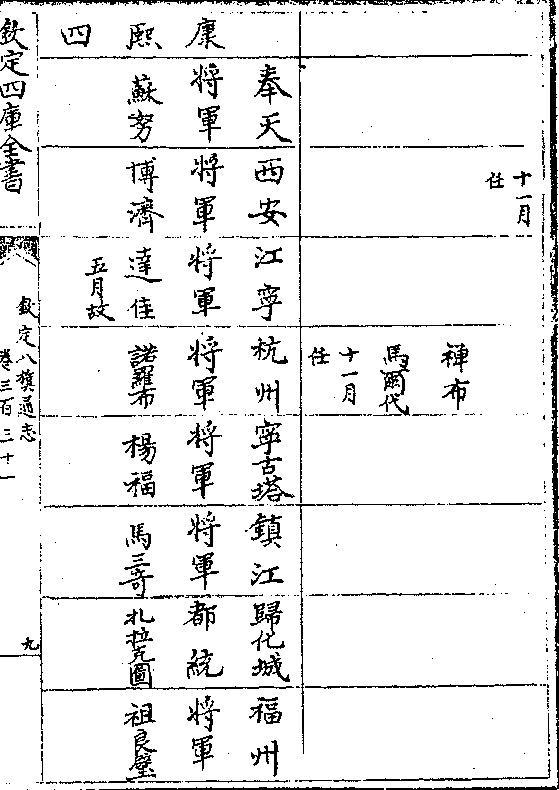 十一月
任
禪布
馬爾代
十一月
任
康熙四
奉天
將軍
蘇努
西安
將軍
博濟
江寧
將軍
達佳
五月故
杭州
將軍
諾羅布
寧古塔
將軍
楊福
鎮江
將軍
馬三奇
歸化城
都統
扎拉克圖
福州
將軍
祖良璧
欽定四庫全書
欽定八旗通志
卷三百三十一
九